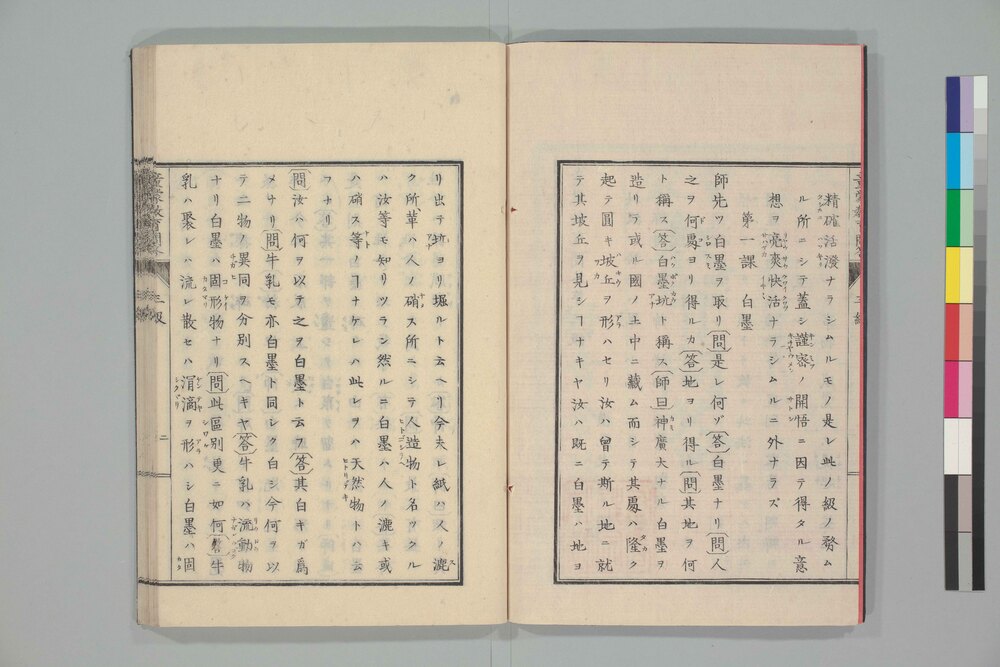 精確活潑ナラシムルモノ是レ此ノ級ノ務ム
ル所ニシテ蓋シ謹密ノ開悟ニ因テ得タル意
想ヲ亮爽快活ナラシムルニ外ナラズ
第一課 白墨
師先ツ白墨ヲ取リ問是レ何ゾ答白墨ナリ問人
之ヲ何處ヨリ得ルカ答地ヨリ得ル問其地ヲ何
ト稱ス答白墨坑ト稱ス師曰神廣大ナル白墨ヲ
造リテ或ル國ノ土中ニ藏ム而シテ其處ハ隆ク
起テ圓キ坡丘ヲ形ハセリ汝ハ曾テ斯ル地ニ就
テ其坡丘ヲ見シヿナキヤ汝ハ既ニ白墨ハ地ヨ
リ出テ坑ヨリ堀ルト云ヘリ今夫レ紙ハ人ノ漉
ク所革ハ人ノ硝ス所ニシテ人造物ト名ツクル
ハ汝等モ知リツラン然ルニ白墨ハ人ノ漉キ或
ハ硝ス等ノヿナケレハ此レヲハ天然物トハ云
フナリ
問汝ハ何ヲ以テ之ヲ白墨ト云フ答其白キガ爲
メナリ問牛乳モ亦白墨ト同シク白シ今何ヲ以
テ二物ノ異同ヲ分別スヘキヤ答牛乳ハ流動物
ナリ白墨ハ固形物ナリ問此區別更ニ如何答牛
乳ハ聚レハ流レ散セハ涓滴ヲ形ハシ白墨ハ固
二